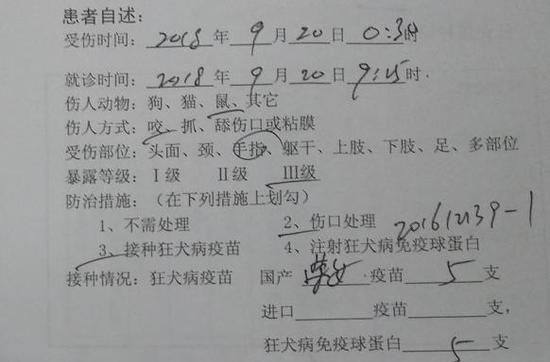 患者自述：
受伤时间：2018年9月20日0:30时
就诊时间：2018年9月20日9:25时.
伤人动物：狗、猫、鼠、其它
伤人方式：咬、抓、舔伤口或粘膜
受伤部位：头面、颈、手指、躯干、上肢、下肢、足、多部位
暴露等级：Ⅰ级 Ⅱ级 Ⅲ级
防治措施：（在下列措施上划勾）
1、不需处理 2、伤口处理 201612139-1
3、接种狂犬病疫苗 4、注射狂犬病免疫球蛋白
接种情况：狂犬病疫苗 国产 疫苗 5 支
进口 疫苗 支，
狂犬病免疫球蛋白 5 支